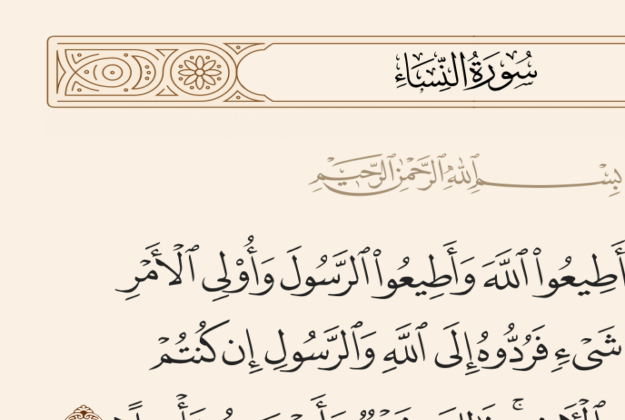 سُورَةُ النِّسَاءِ
بِسْمِ ٱللَّهِ ٱلرَّحْمَٰنِ ٱلرَّحِيمِ
أَطِيعُوا۟ ٱللَّهَ وَأَطِيعُوا۟ ٱلرَّسُولَ وَأُو۟لِى ٱلْأَمْرِ
شَىْءٍ فَرُدُّوهُ إِلَى ٱللَّهِ وَٱلرَّسُولِ إِن كُنتُمْ